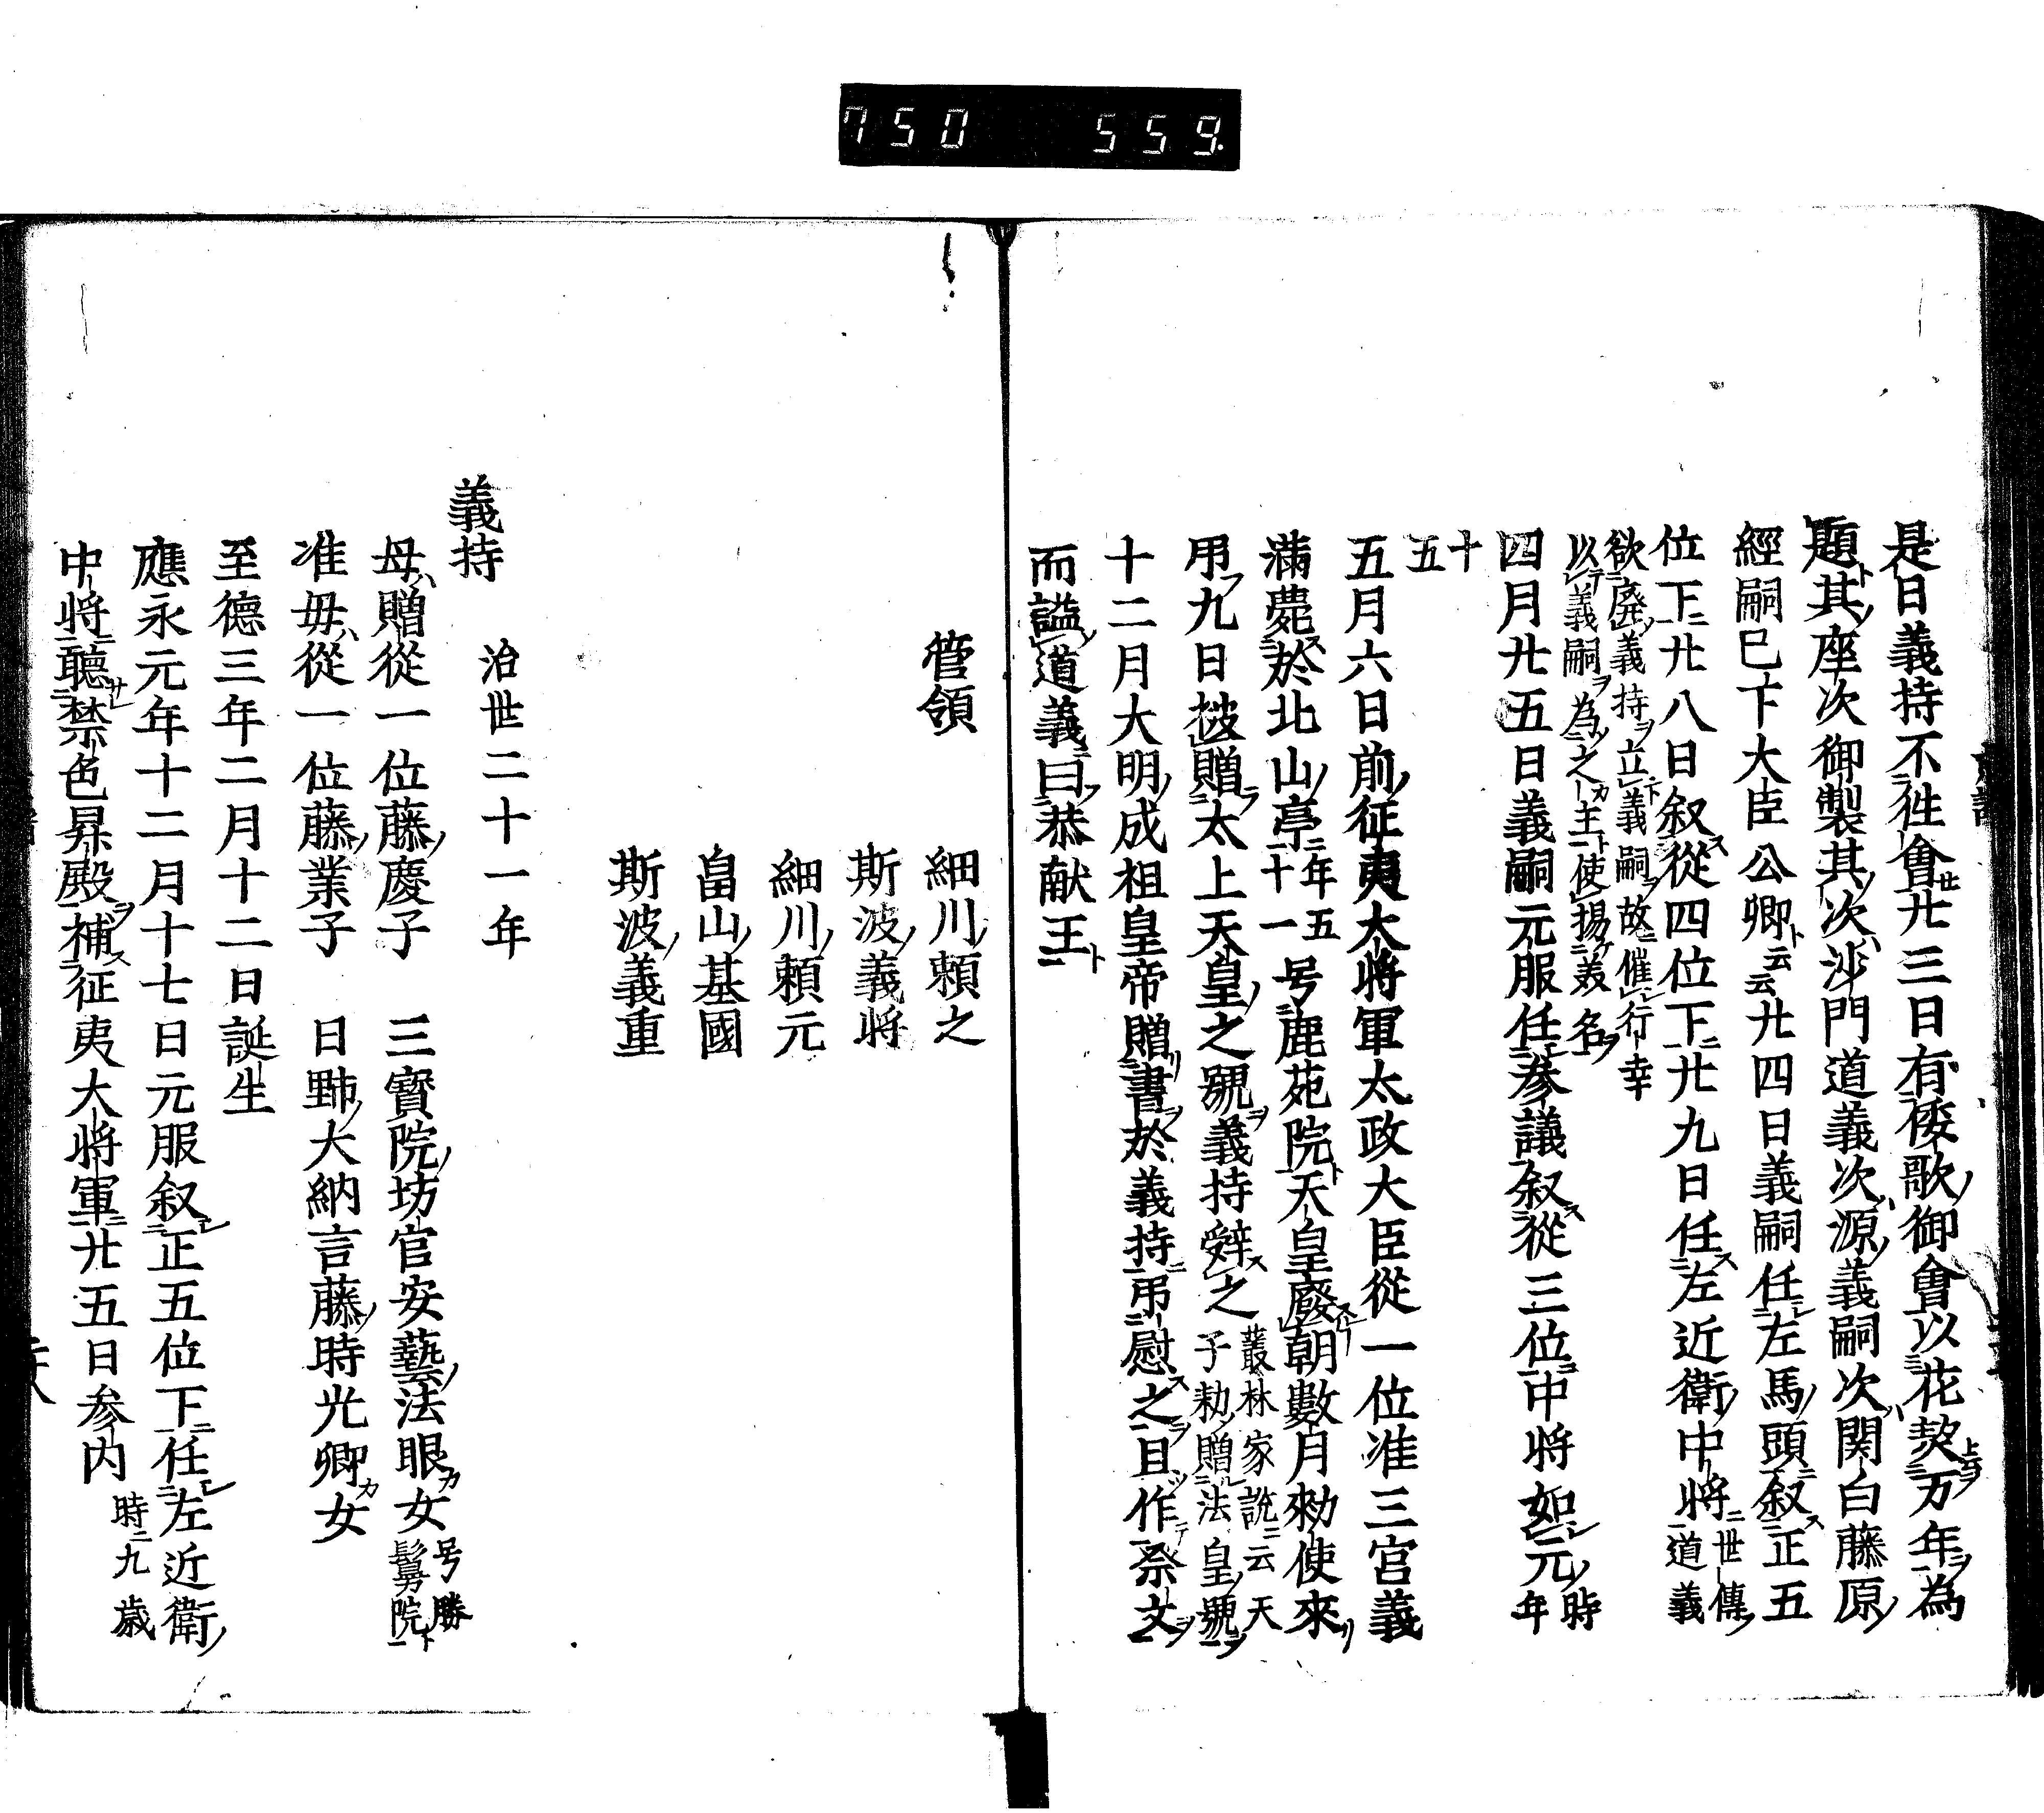 750 559.
是日義持不徃會廿三日有倭歌御會以花契万年為
題其座次御製其次沙門道義次源義嗣次関白藤原
經嗣已下大臣公卿云云廿四日義嗣任左馬頭叙正五
位下廿八日叙從四位下廿九日任左近衛中將世傳道義
欲廃義持立義嗣故催行幸
以義嗣為之主使揚美名
四月廿五日義嗣元服任參議叙從三位中將如元時年
十五
五月六日前征夷大將軍太政大臣從一位准三宮義
滿薨於北山亭年五十一号鹿苑院天皇廢朝數月勅使來
吊九日被贈太上天皇之號義持辤之叢林家說云天子勅贈法皇號
十二月大明成祖皇帝贈書於義持吊慰之且作祭文
而謚道義曰恭献王
管領
細川頼之
斯波義将
細川頼元
畠山基國
斯波義重
義持 治世二十一年
母贈從一位藤慶子 三寳院坊官安藝法眼女号勝鬘院
准母從一位藤業子 日野大納言藤時光卿女
至德三年二月十二日誕生
應永元年十二月十七日元服叙正五位下任左近衛
中将聽禁色昇殿補征夷大將軍廿五日参内時九歳